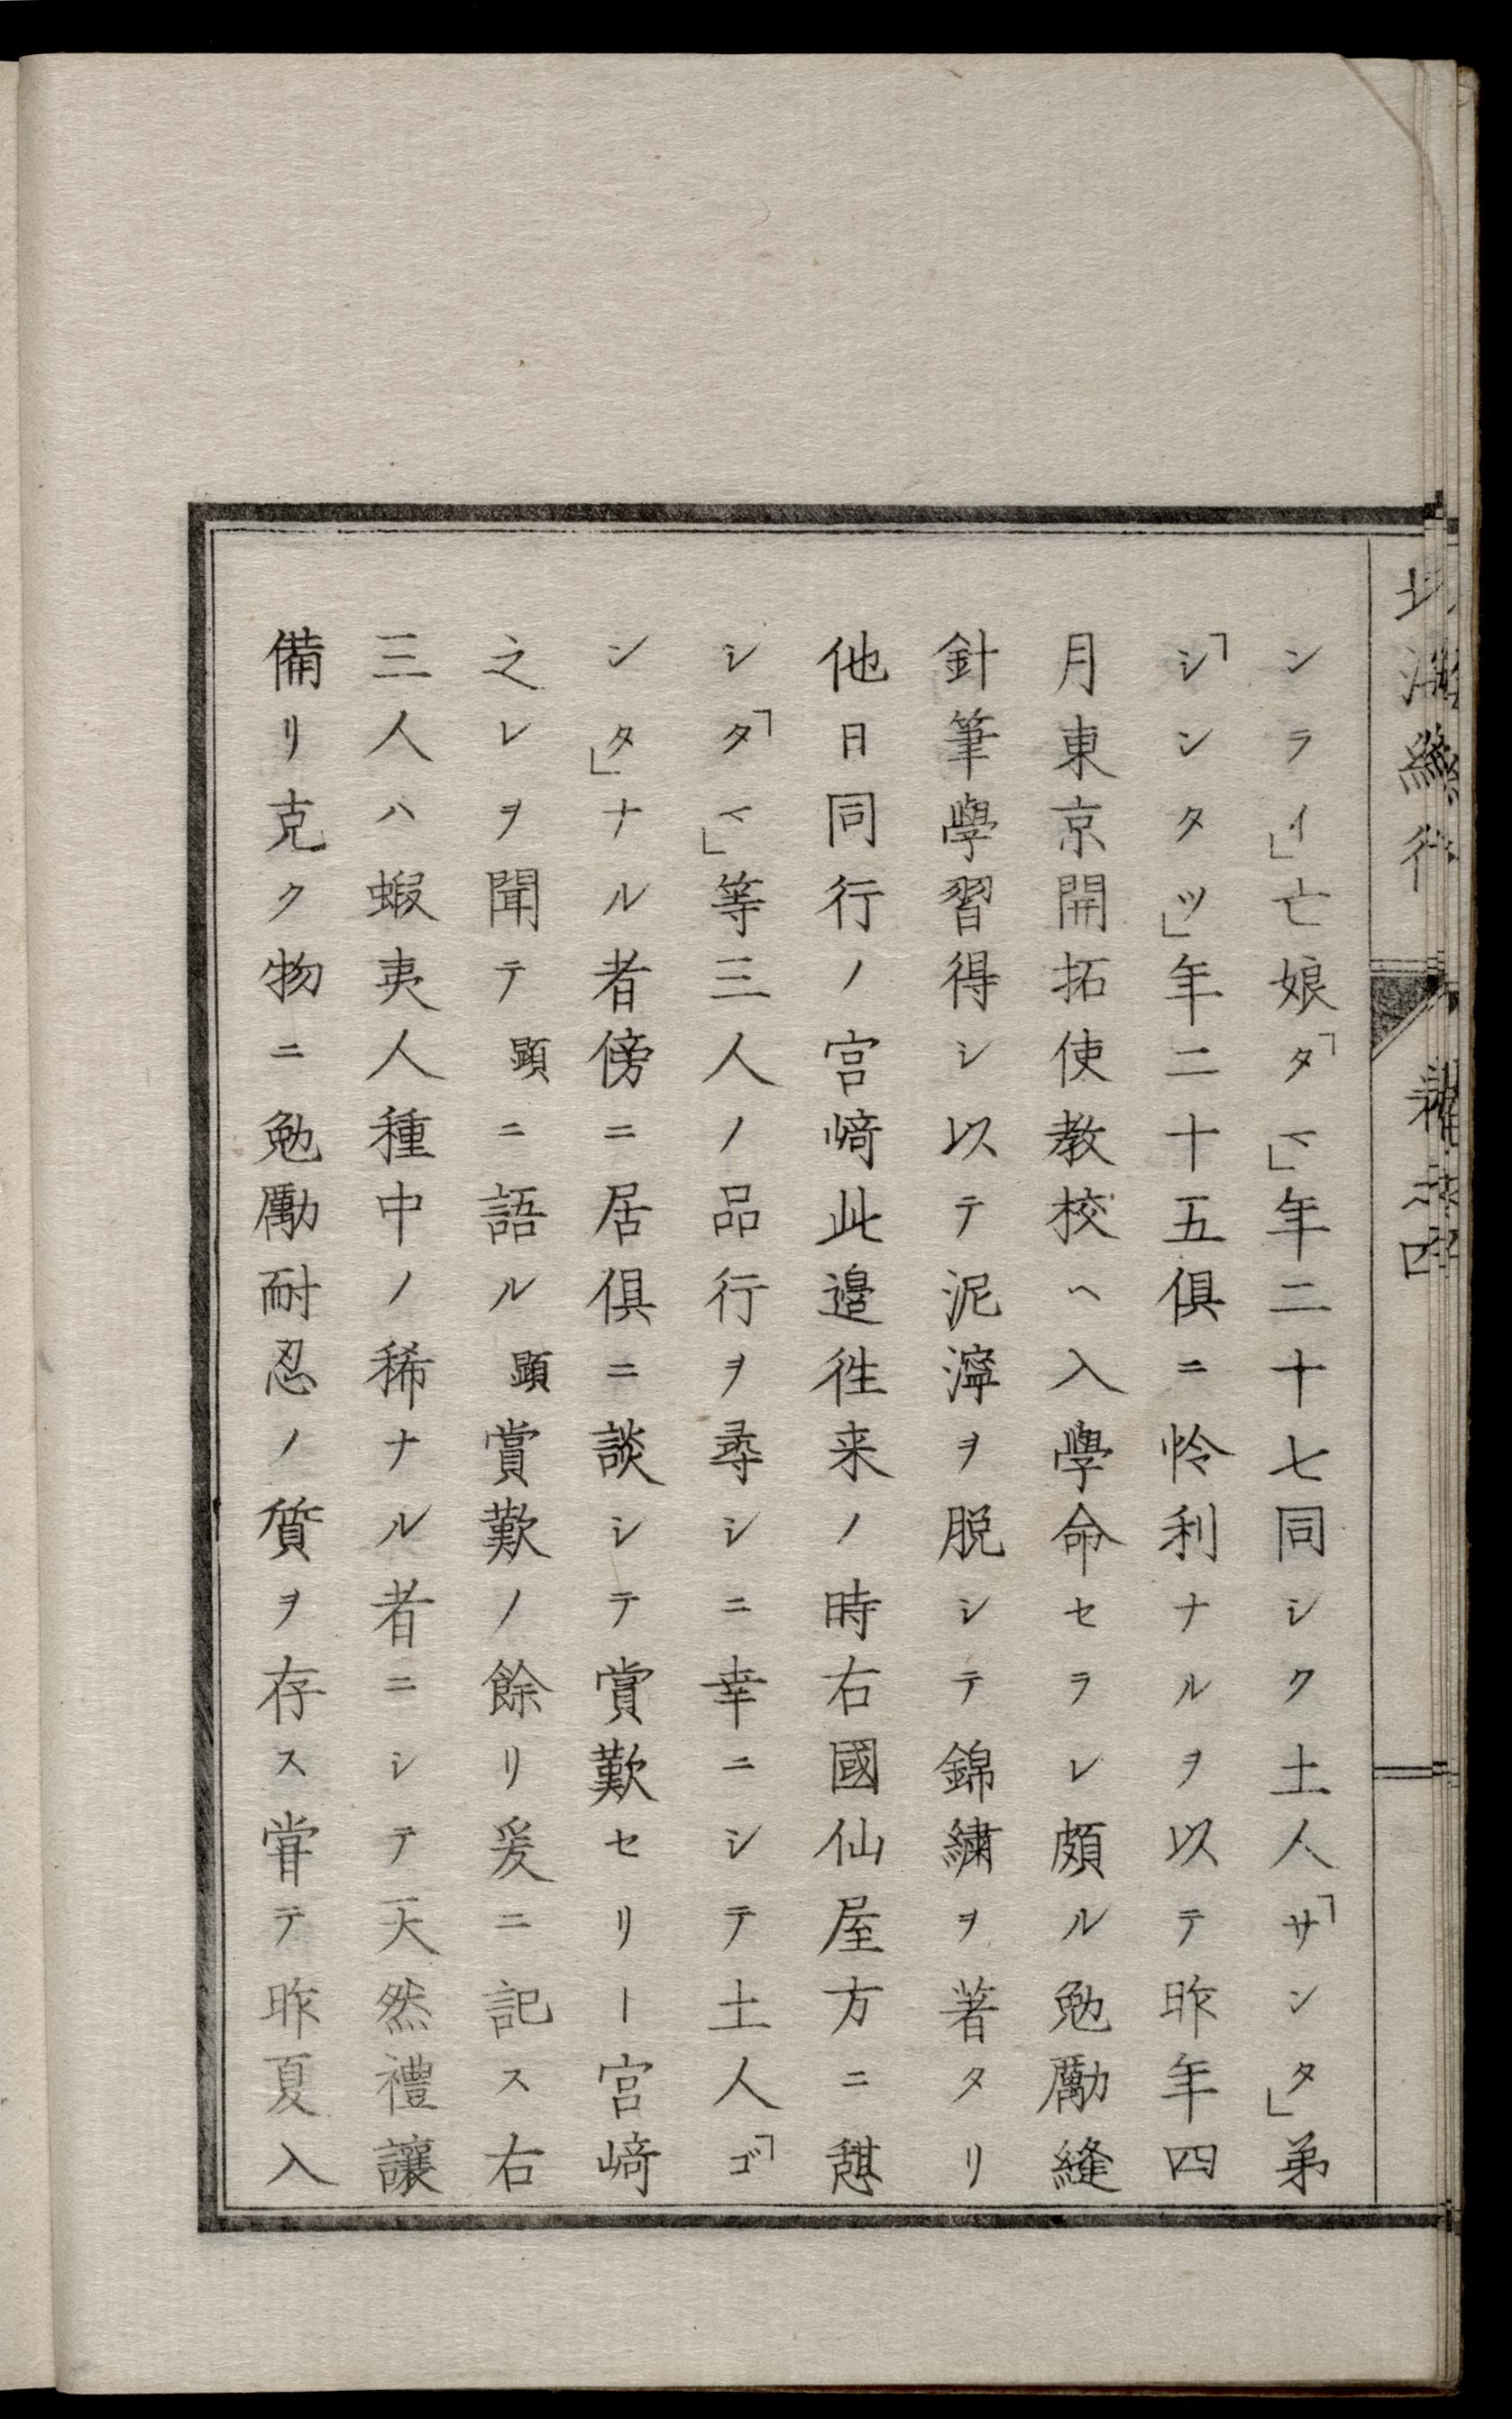 ンライ」亡娘「タマ」年二十七同シク土人「サンタ」弟
「シンタツ」年二十五俱ニ怜利ナルヲ以テ昨年四
月東京開拓使教校ヘ入學命セラレ頗ル勉勵縫
針筆學習得シ以テ泥濘ヲ脱シテ錦繍ヲ著タリ
他日同行ノ宮﨑此邉徃来ノ時右國仙屋方ニ憇
シ「タマ」等三人ノ品行ヲ尋シニ幸ニシテ土人「ゴ
ンタ」ナル者傍ニ居俱ニ談シテ賞歎セリ―宮﨑
之レヲ聞テ顕ニ語ル顕賞歎ノ餘リ爰ニ記ス右
三人ハ蝦夷人種中ノ稀ナル者ニシテ天然禮讓
備リ克ク物ニ勉勵耐忍ノ質ヲ存ス甞テ昨夏入